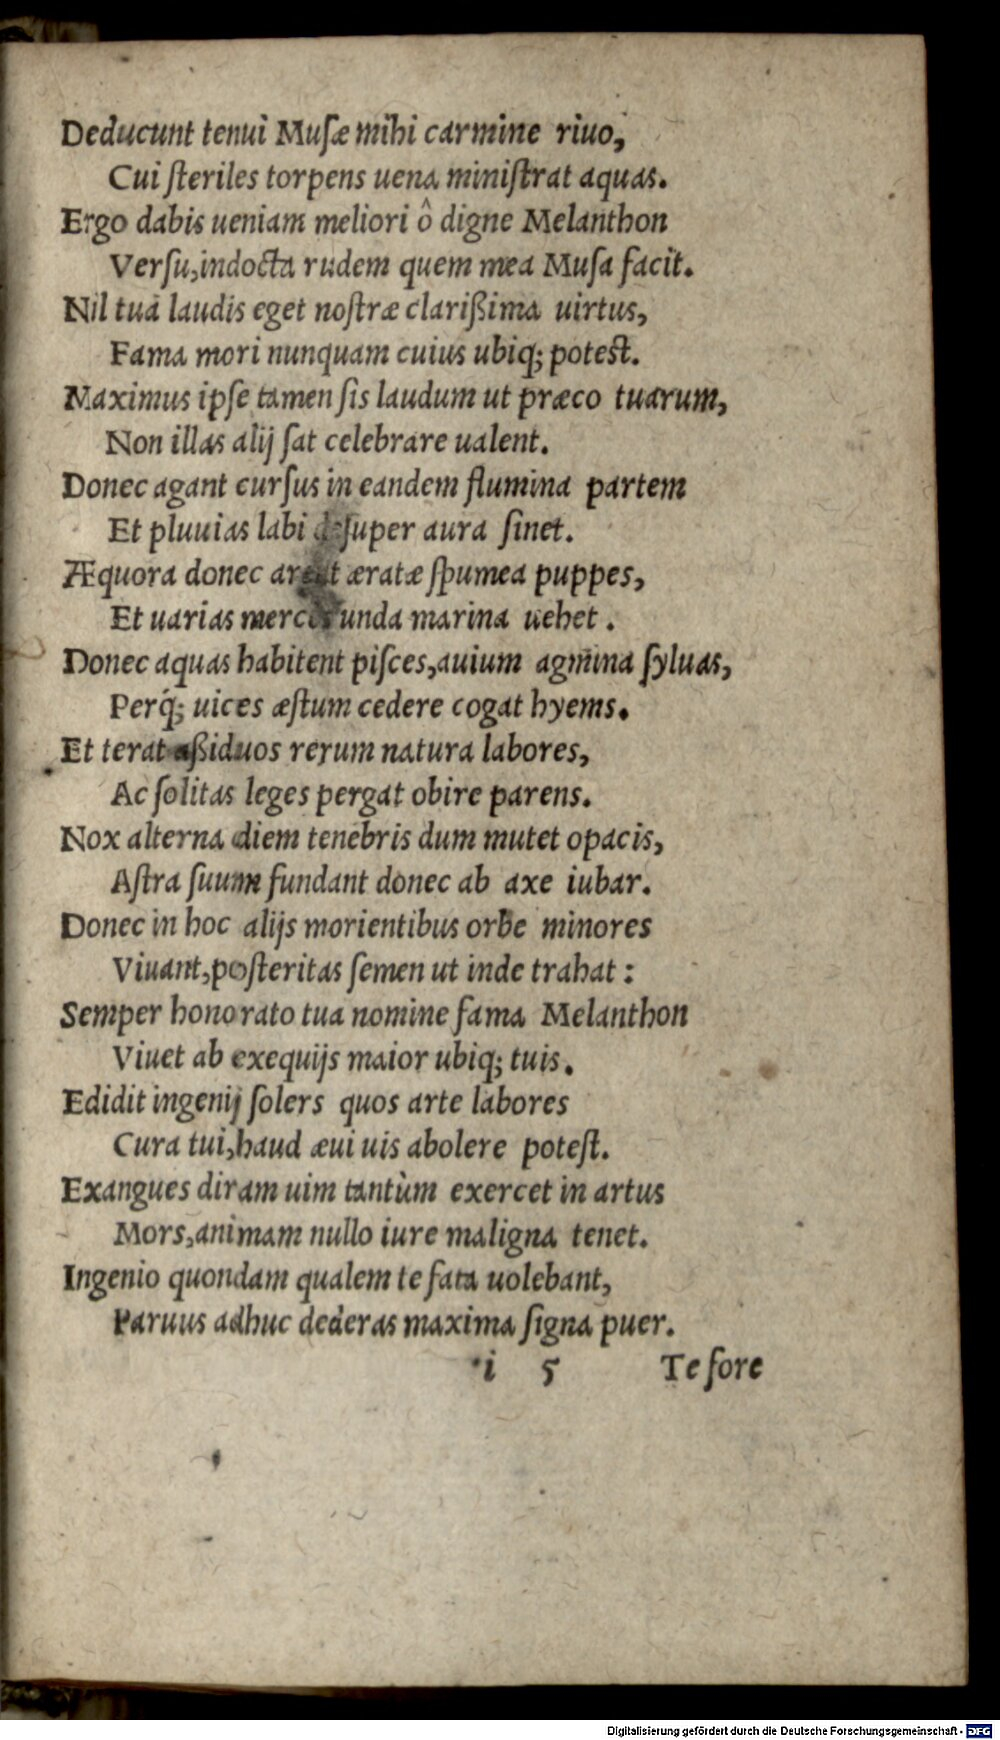 Deducunt tenui Muſæ mihi carmine riuo,
Cui ſteriles torpens uena miniſtrat aquas.
Ergo dabis ueniam meliori ô digne Melanthon
Verſu, indocta rudem quem mea Muſa facit.
Nil tua laudis eget noſtræ clarißima uirtus,
Fama mori nunquam cuius ubiq; poteſt.
Maximus ipſe tamen ſis laudum ut præco tuarum,
Non illas alij ſat celebrare ualent.
Donec agant curſus in eandem flumina partem
Et pluuias labi deſuper aura ſinet.
Æquora donec arent æratæ ſpumea puppes,
Et uarias merces unda marina uehet.
Donec aquas habitent piſces, auium agmina ſyluas,
Perq́; uices æſtum cedere cogat hyems.
Et terat aßiduos rerum natura labores,
Ac ſolitas leges pergat obire parens.
Nox alterna diem tenebris dum mutet opacis,
Aſtra ſuum fundant donec ab axe iubar.
Donec in hoc alijs morientibus orbe minores
Viuant, poſteritas ſemen ut inde trahat:
Semper honorato tua nomine fama Melanthon
Viuet ab exequijs maior ubiq; tuis.
Edidit ingenij ſolers quos arte labores
Cura tui, haud æui uis abolere poteſt.
Exangues diram uim tantùm exercet in artus
Mors, animam nullo iure maligna tenet.
Ingenio quondam qualem te fata uolebant,
Paruus adhuc dederas maxima ſigna puer.
i 5 Te fore
Digitalisierung gefördert durch die Deutsche Forschungsgemeinschaft - DFG